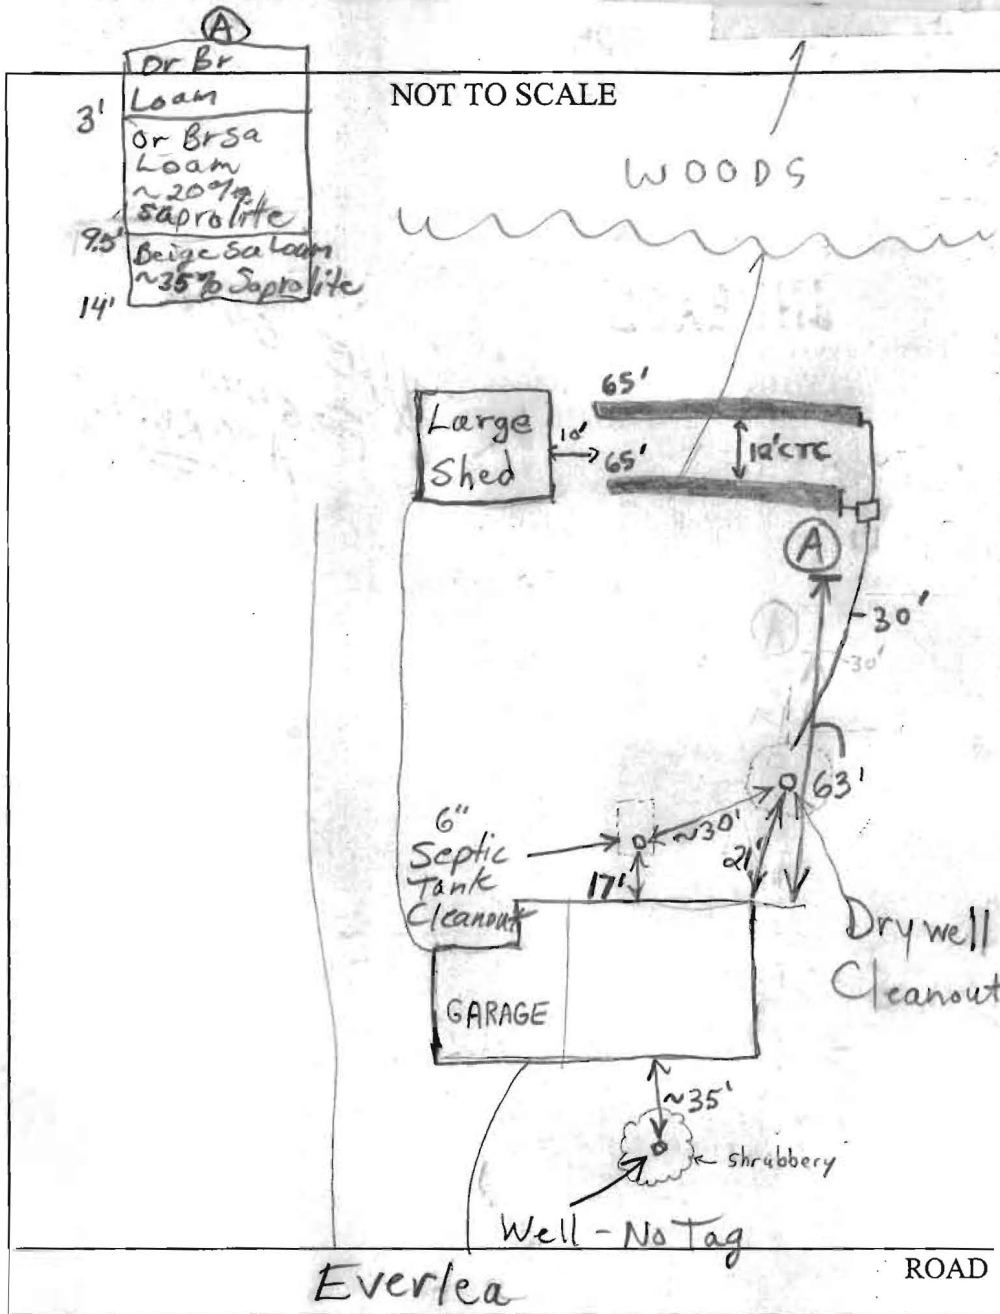 A
Or Br
Loam
3'
Or Br Sa
Loam
~20%
Saprolite
9.5'
Beige Sa Loam
~35% Saprolite
14'
NOT TO SCALE
WOODS
65'
Large
Shed
10'
65'
12' CTC
A
30'
30'
63'
6"
Septic
Tank
Cleanout
~30'
21'
17'
Drywell
Cleanout
GARAGE
~35'
shrubbery
Well - No Tag
Everlea
ROAD